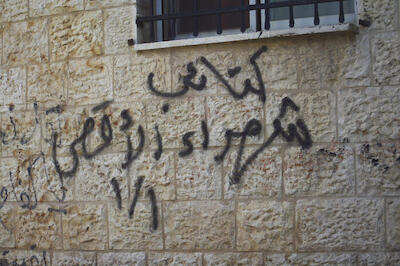 كتائب
شهداء الأقصى
١/١